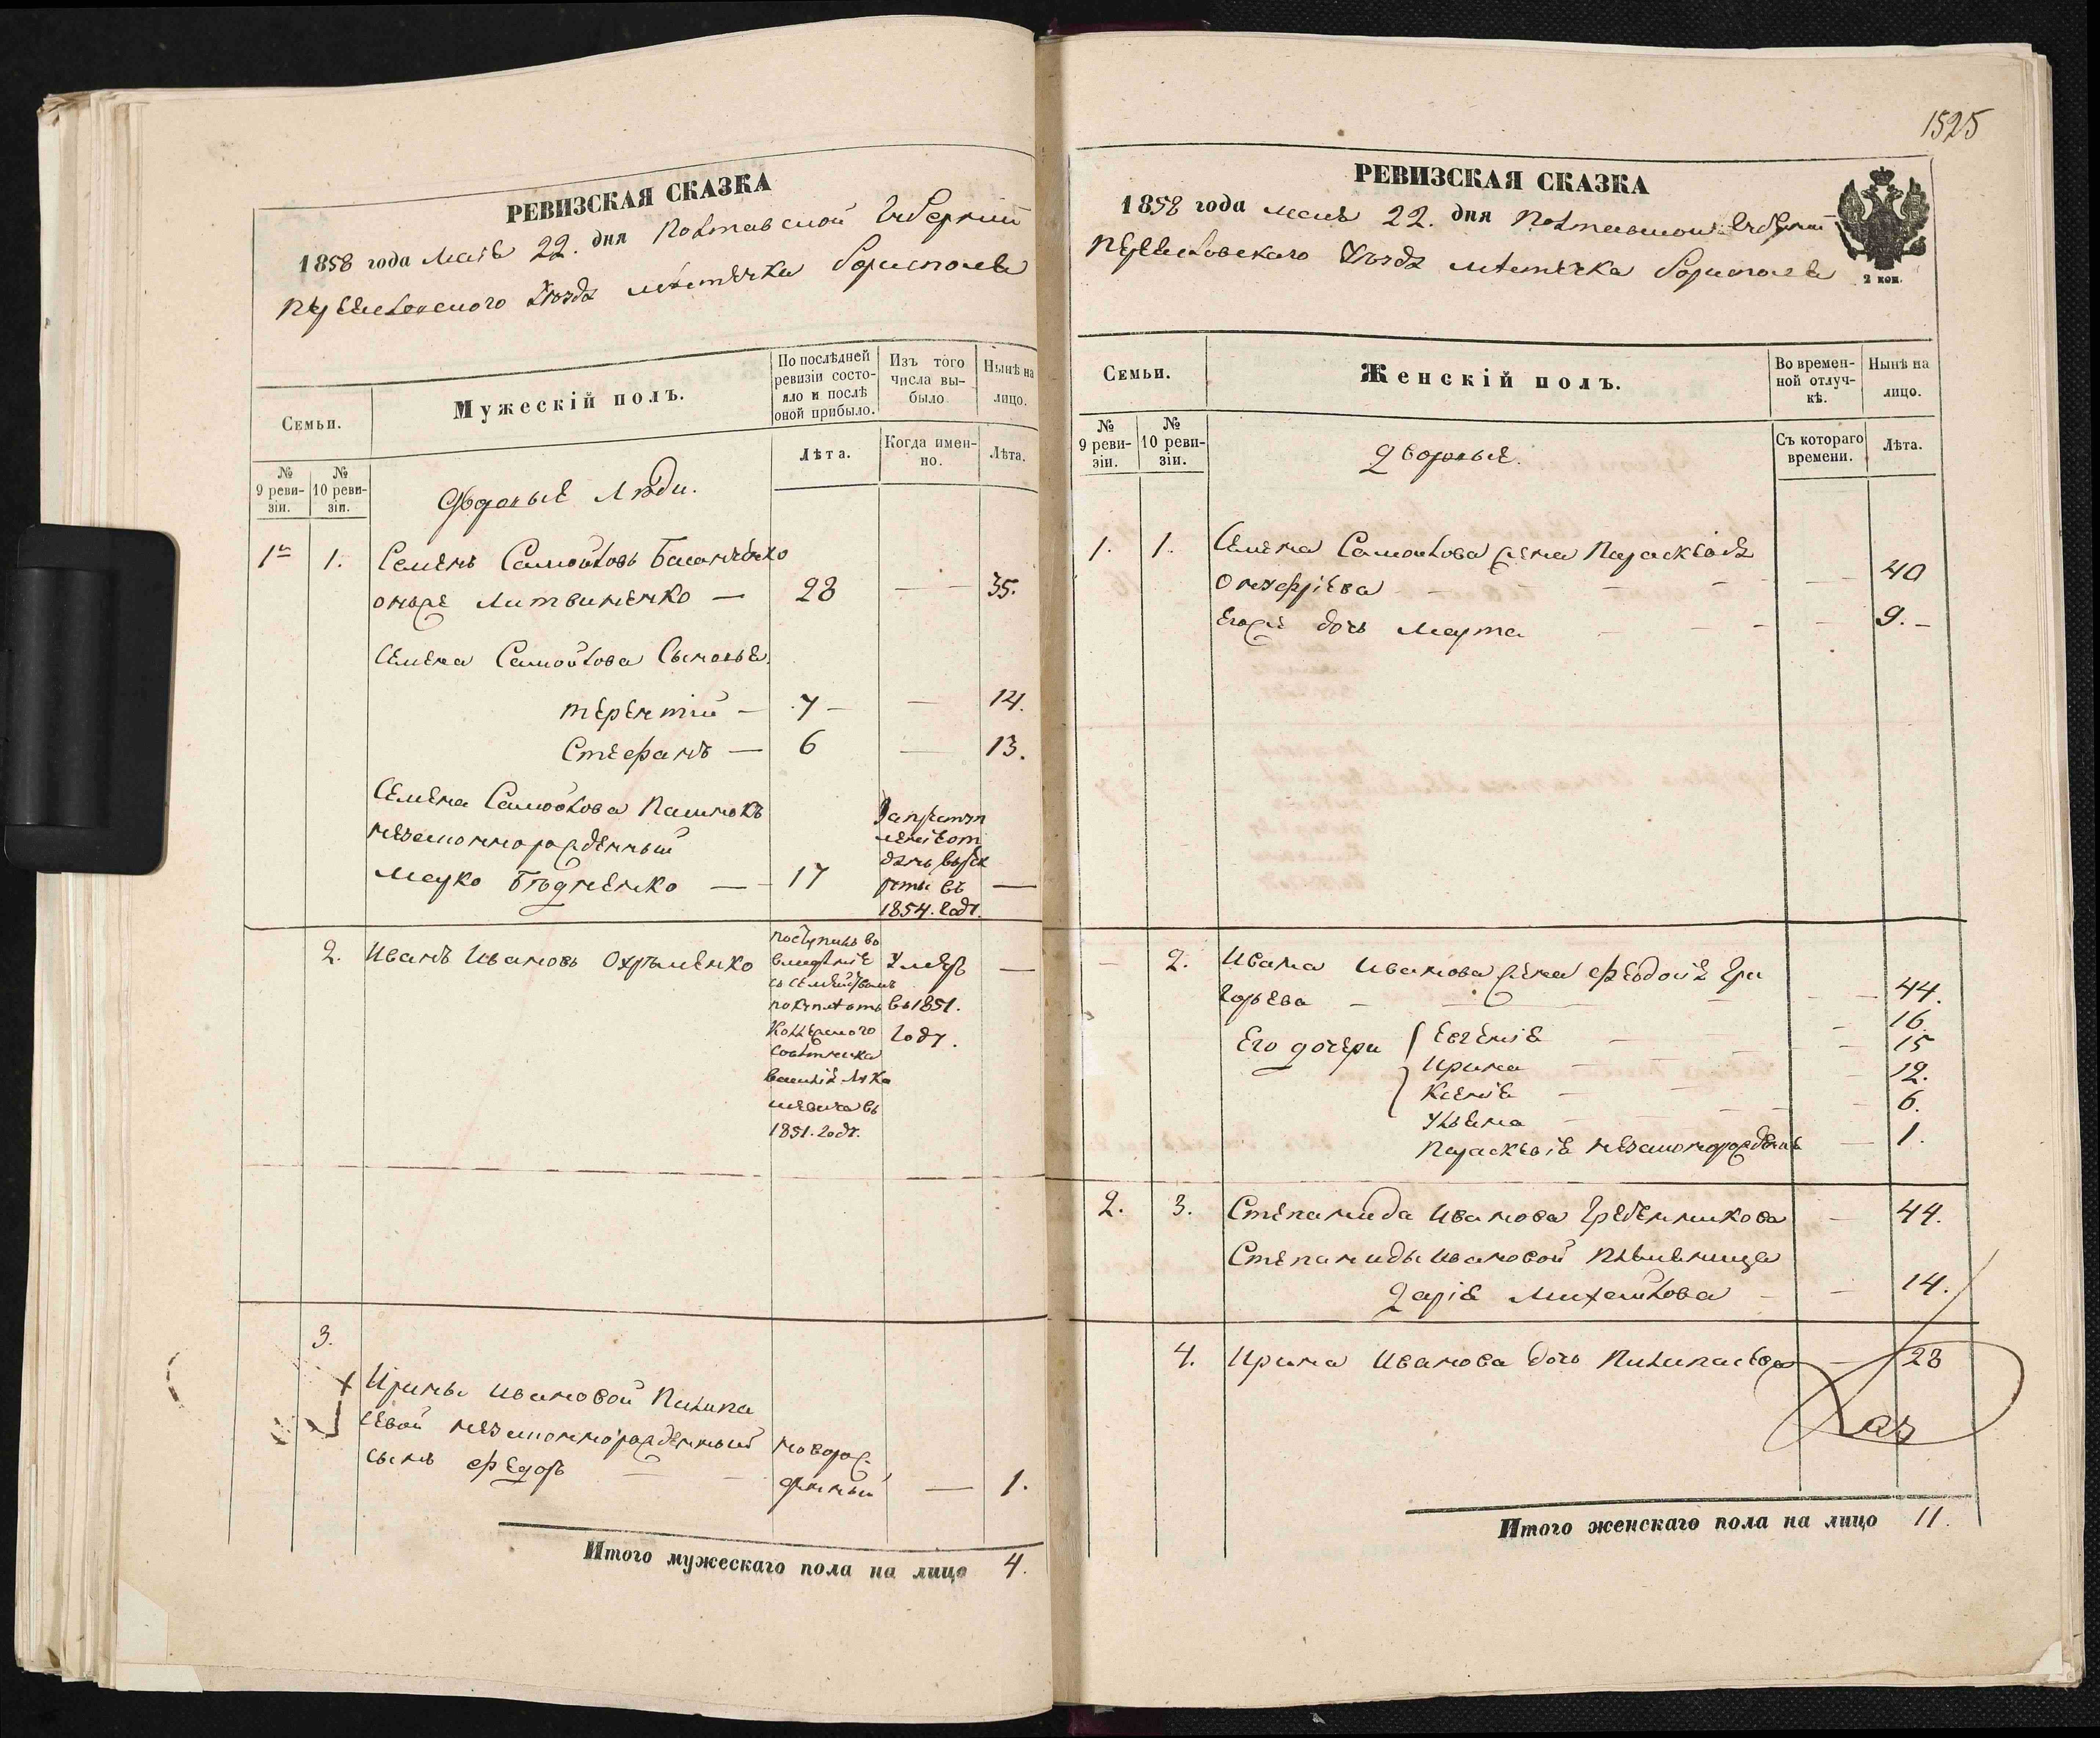 РЕВИЗСКАЯ СКАЗКА
1858 года Мая 22. дня Полтавской Губерніи
Переяславского Уѣзда мѣстечка Борисполя
Семьи.
Мужескій полъ.
По послѣдней ревизіи состояло и послѣ оной прибыло.
Изъ того числа выбыло.
Нынѣ на лицо.
№ 9 ревизіи.
№ 10 ревизіи.
Лѣта.
Когда именно.
Лѣта.
Дворовые Люди.
1. Семенъ Самойловъ
онже Литвиненко — 28 — 35.
Семена Самойлова Сыновья.
Терентій — 7 — — 14.
Стефанъ — 6 — 13.
Семена Самойлова
незаконнорожденный
Марко — 17 —
въ
1854. году.
2. Иванъ Ивановъ Охрѣменко —
поступилъ во
владѣніе
съ семействомъ
покупкѣ отъ
Колежского
Совѣтника
въ
1851. году.
Умеръ
въ 1851.
году.
3.
Ирины Ивановой Пилипа
евой незаконнорожденный
сынъ Федоръ
новорож
денный — 1.
Итого мужескаго пола на лицо 4.
1525
РЕВИЗСКАЯ СКАЗКА
1858 года мая 22. дня Полтавской Губерніи
Переяславскаго Уѣзда мѣстечка Борисполя
2 коп.
Семьи.
Женскій полъ.
Во временной отлучкѣ.
Нынѣ на лицо.
№ 9 ревизіи.
№ 10 ревизіи.
Съ котораго времени.
Лѣта.
Дворовые.
1. 1. Семена Самойлова жена Параскевія
Онуфріева — 40
Егоже дочь Марта — 9. —
— 2. Ивана Иванова жена Феодосія Гри
горьева — 44.
Его дочери Евгенія — 16.
Ирина — 15
Ксенія — 12.
Ульяна — 6.
Параскевія незаконорожденная — 1.
2. 3. Степанида Иванова Гребенникова — 44.
Степаниды Ивановой племянница
Дарія Михайлова — 14.
4. Ирина Иванова дочь — 28
Итого женскаго пола на лицо 11.